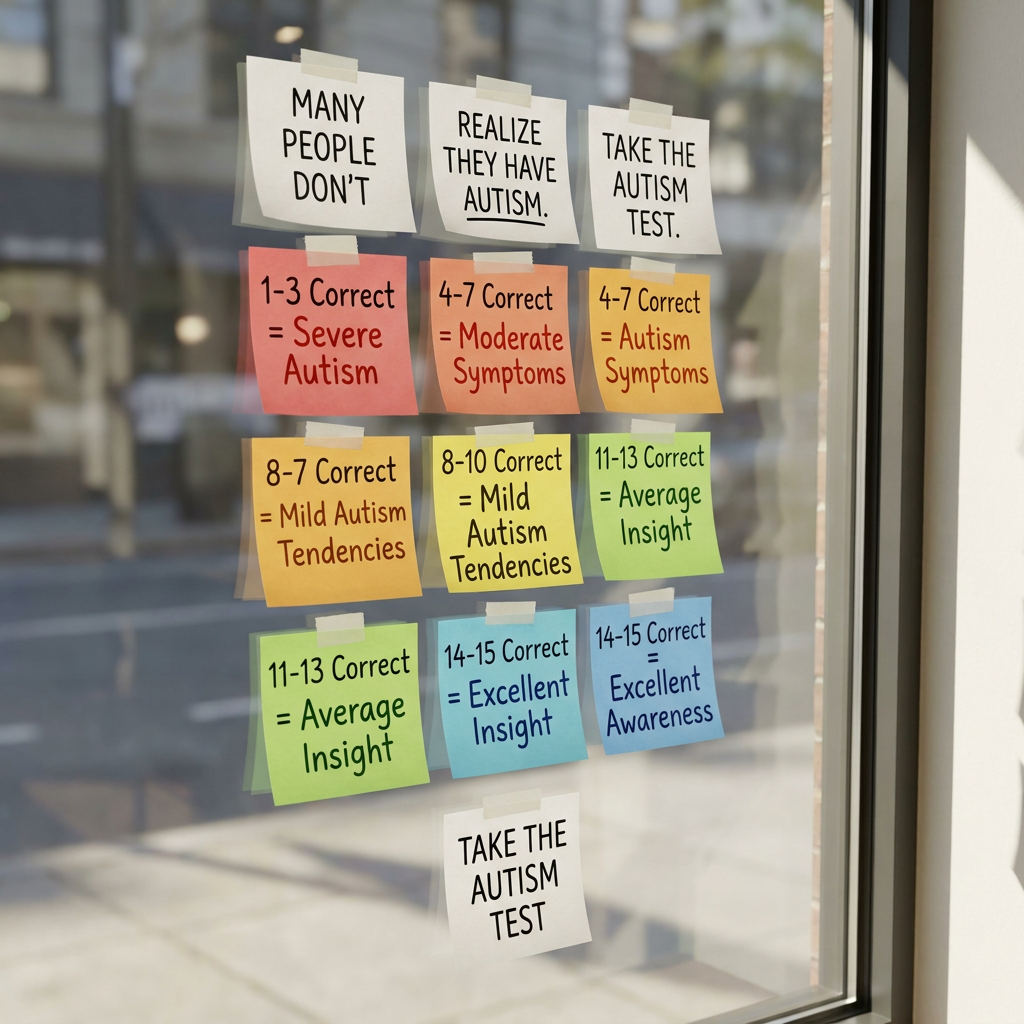 MANY
PEOPLE
DON'T
REALIZE
THEY HAVE
AUTISM.
TAKE THE
AUTISM
TEST.
1-3 Correct
= Severe
Autism
4-7 Correct
= Moderate
Symptoms
4-7 Correct
= Autism
Symptoms
8-7 Correct
= Mild Autism
Tendencies
8-10 Correct
= Mild
Autism
Tendencies
11-13 Correct
= Average
Insight
11-13 Correct
= Average
Insight
14-15 Correct
= Excellent
Insight
14-15 Correct
=
Excellent
Awareness
TAKE THE
AUTISM
TEST